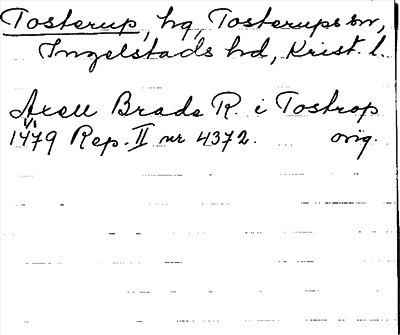 Tosterup, hg, Tosterups sn,
Ingelstads hd, Krist. l.
Axell Brade R. i Tostrop
1479 Rep. II nr 4372. orig.